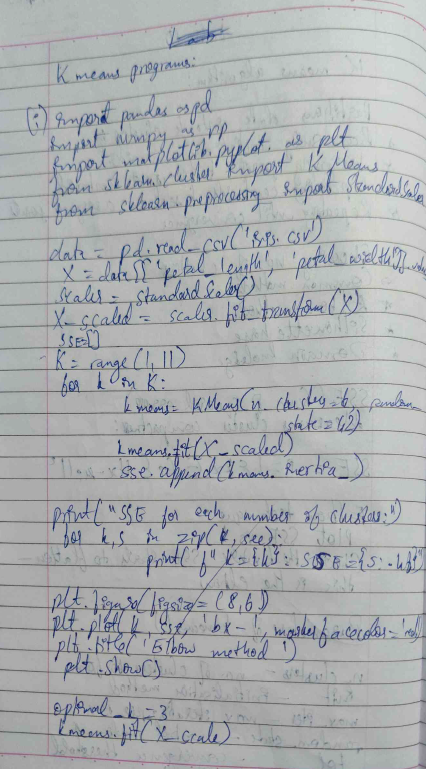 Lab
K means programs:
(i) import pandas as pd
import numpy as np
import matplotlib.pyplot as plt
from sklearn.cluster import KMeans
from sklearn.preprocessing import StandardScaler
data = pd.read_csv('Iris.csv')
X = data[['petal_length', 'petal_width']].values
scaler = StandardScaler()
X_scaled = scaler.fit_transform(X)
SSE=[]
K = range(1, 11)
for k in K:
kmeans = KMeans(n_clusters=k, random_
state=42)
kmeans.fit(X_scaled)
sse.append(kmeans.inertia_)
print("SSE for each number of clusters:")
for k,s in zip(K, sse):
print(f"K={k}: SSE={s:.4f}")
plt.figure(figsize=(8,6))
plt.plot(K, sse, 'bx-', markerfacecolor='red')
plt.title('Elbow method')
plt.show()
optimal_k=3
kmeans.fit(X_scale)